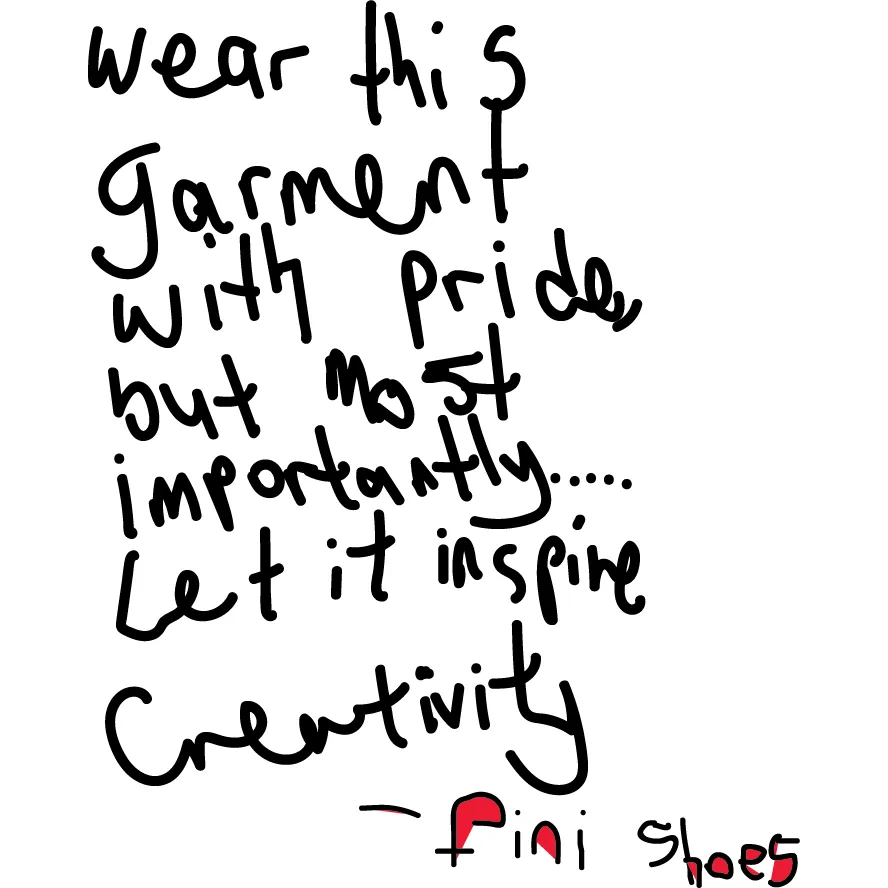 wear this
garment
with pride,
but most
importantly.....
Let it inspire
Creativity
- Fini Shoes